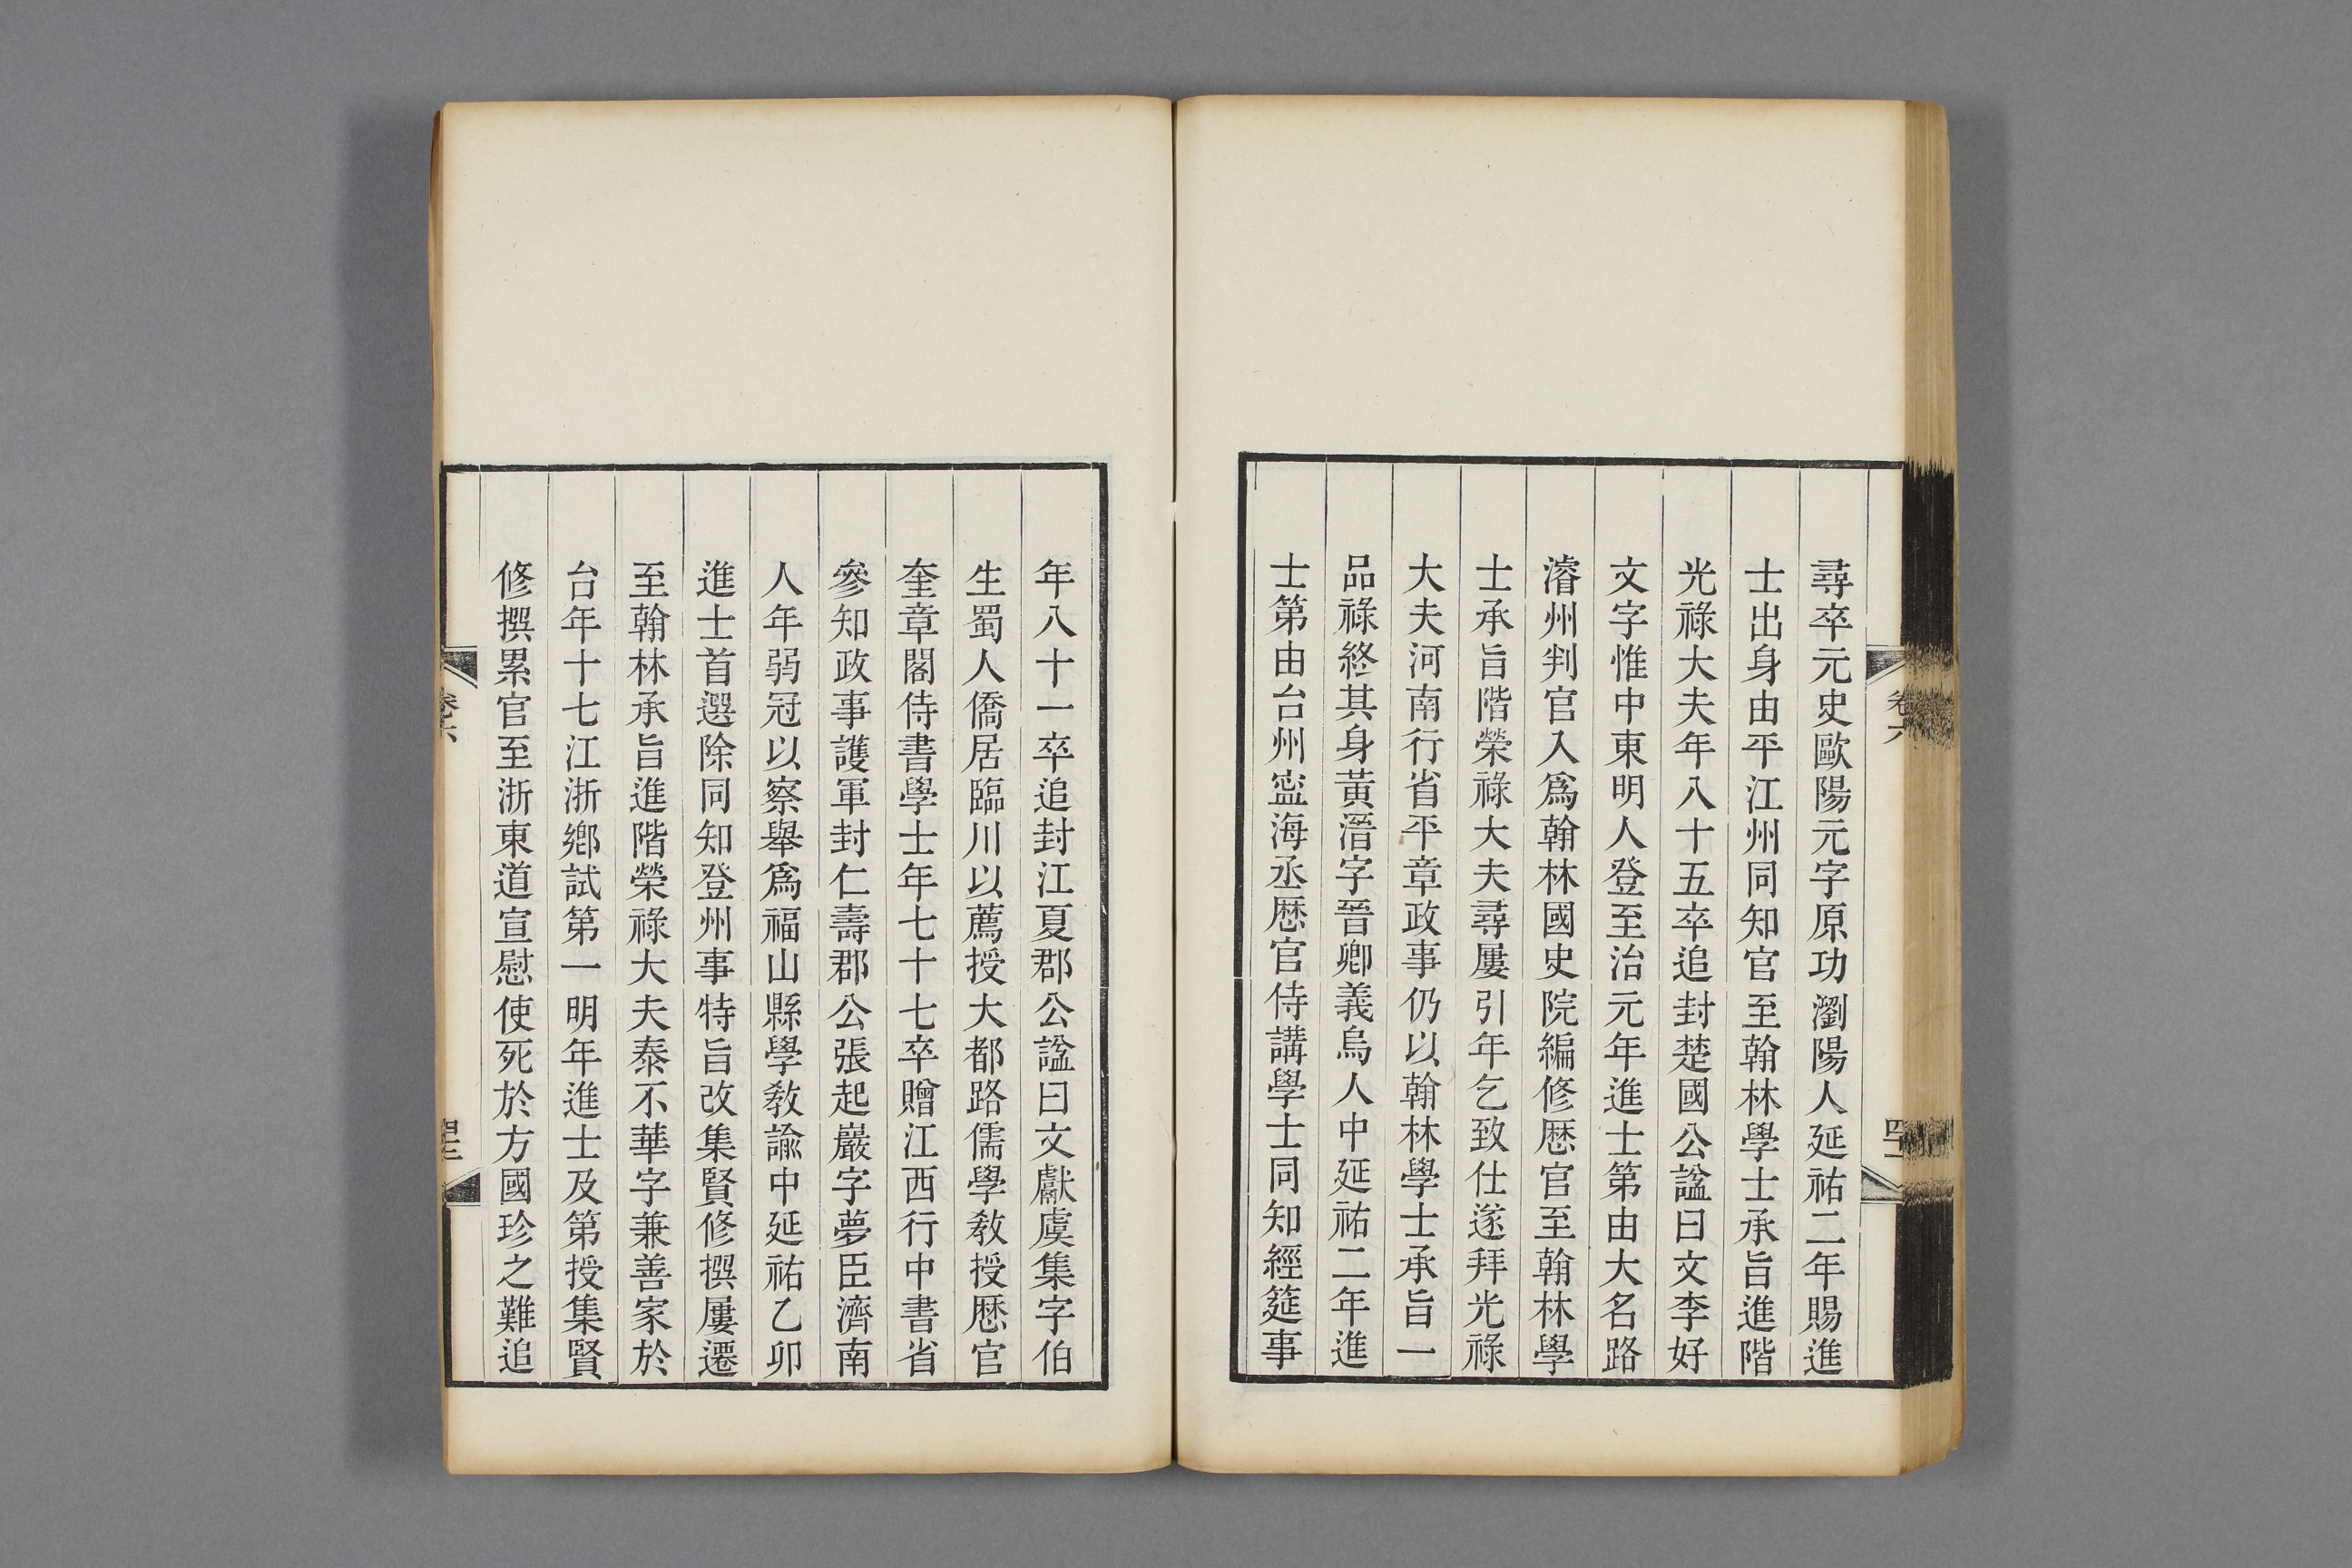 尋卒元史歐陽元字原功瀏陽人延祐二年賜進
士出身由平江州同知官至翰林學士承旨進階
光祿大夫年八十五卒追封楚國公諡曰文李好
文字惟中東明人登至治元年進士第由大名路
濬州判官入爲翰林國史院編修歷官至翰林學
士承旨階榮祿大夫尋屢引年乞致仕遂拜光祿
大夫河南行省平章政事仍以翰林學士承旨一
品祿終其身黃溍字晉卿義烏人中延祐二年進
士第由台州寍海丞歷官侍講學士同知經筵事
年八十一卒追封江夏郡公諡曰文獻虞集字伯
生蜀人僑居臨川以薦授大都路儒學敎授歷官
奎章閣侍書學士年七十七卒贈江西行中書省
參知政事護軍封仁壽郡公張起巖字夢臣濟南
人年弱冠以察舉爲福山縣學敎諭中延祐乙卯
進士首選除同知登州事特旨改集賢修撰屢遷
至翰林承旨進階榮祿大夫泰不華字兼善家於
台年十七江浙鄕試第一明年進士及第授集賢
修撰累官至浙東道宣慰使死於方國珍之難追
卷六